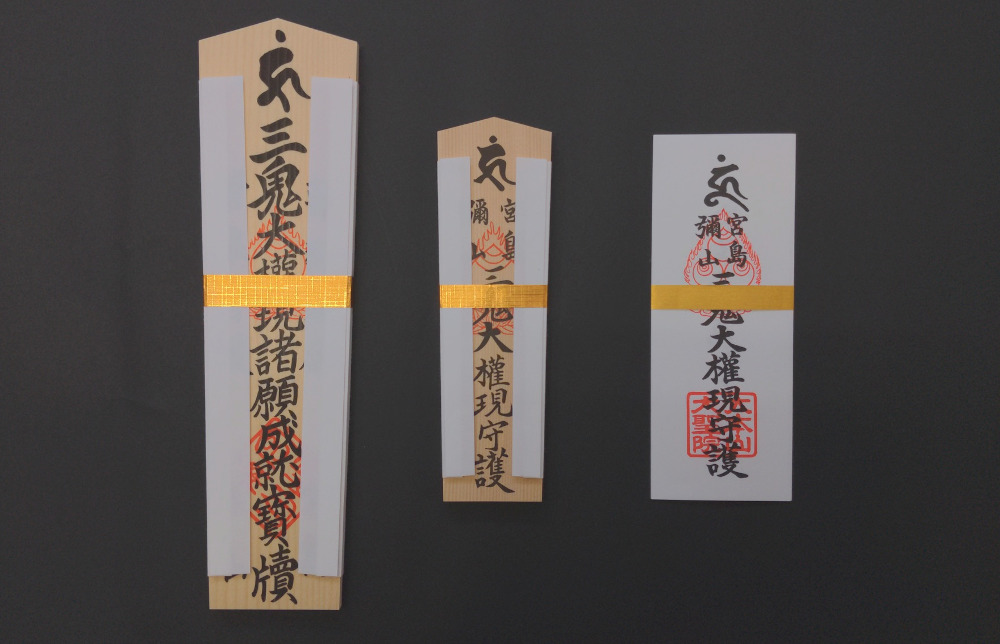 三鬼大權現諸願成就寶牘
宮島
彌山
三鬼大權現守護
宮島
彌山
三鬼大權現守護
大本山
大聖院